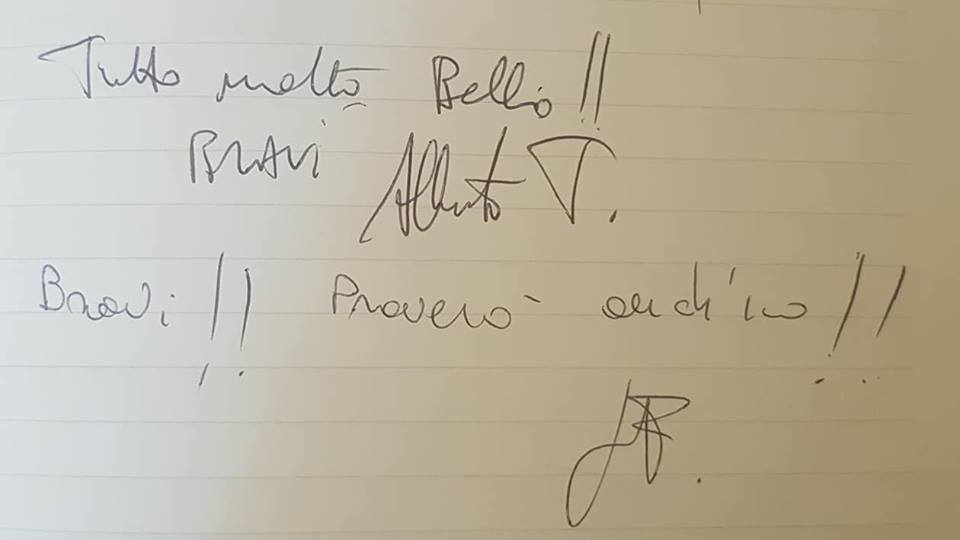 Tutto molto Bello!!
BRAVI Alberto T.
Bravi!! Proverò anch'io!!